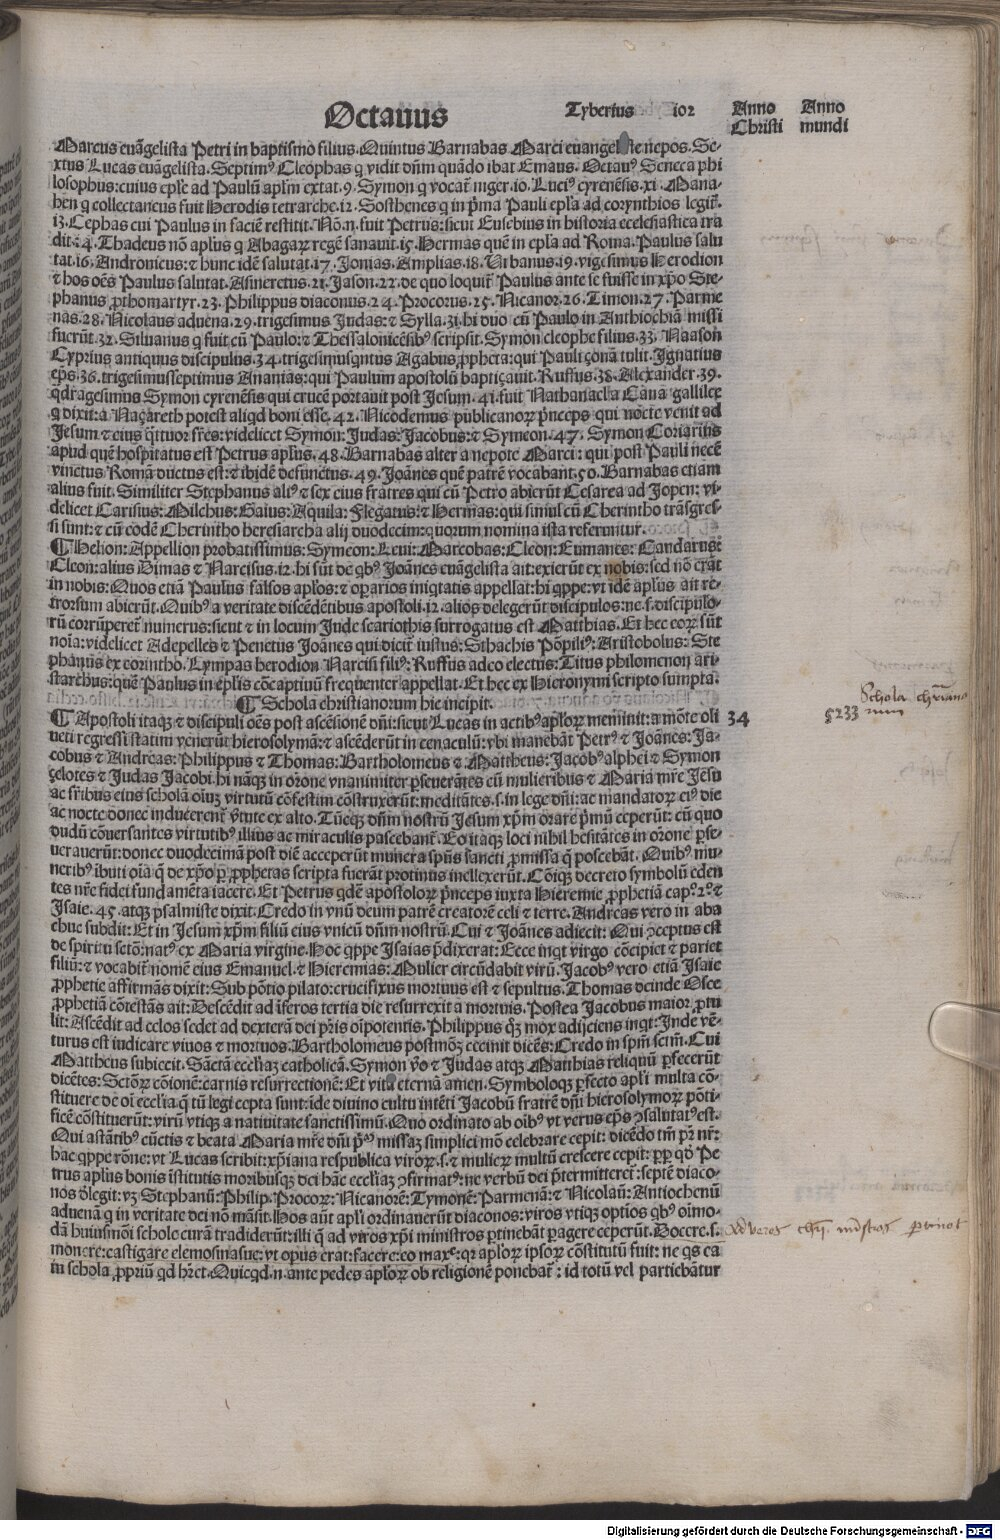 Octauus Tyberius 102 Anno Christi Anno mundi
Marcus euāgelista Petri in baptismo filius. Quintus Barnabas Marci euangeliste nepos. Se-
xtus Lucas euāgelista. Septimꝰ Cleophas q̄ vidit dn̄m quādo ibat Emaus. Octauꝰ Seneca phi
losophus: cuius eple ad Paulū aplm̄ extāt. 9. Symon q vocat̄ niger. 10. Luciꝰ cyrenēsis. xi. Mana-
hen q collectaneus fuit Herodis tetrarche. 12. Sosthenes q in p̄ma Pauli epl̄a ad corynthios legit̄.
13. Cephas cui Paulus in faciē restitit. Nō .n. fuit Petrus: sicut Eusebius in historia ecclesiastica tra
dit. 14. Thadeus nō apl̄us q Abagarꝝ regē sanauit. 15. Hermas quē in epl̄a ad Roma. Paulus salu
tat. 16. Andronicus: ⁊ hunc idē salutat. 17. Jonias. Amplias. 18. Urbanus. 19. vigesimus Herodion
⁊ hos oēs Paulus salutat. Asineretus. 21. Jason. 22. de quo loquit̄ Paulus ante se fuisse in xp̄o Ste-
phanus ꝓthomartyr. 23. Philippus diaconus. 24. Procorus. 25. Nicanor. 26. Timon. 27. Parme
nas. 28. Nicolaus aduena. 29. trigesimus Judas: ⁊ Sylla. 31. hi duo cū Paulo in Anthiochiā missi
fuerūt. 32. Siluanus q fuit cū Paulo: ⁊ Thessalonicēsibꝰ scripsit. Symon cleophe filius. 33. Naason
Cyprius antiquus discipulus. 34. trigesimusq̄ntus Agabus ꝓpheta: qui Pauli çonā tulit. Ignatius
ep̄s. 36. trigesimusseptimus Ananias: qui Paulum apostolū baptiçauit. Ruffus. 38. Alexander. 39.
q̄dragesimus Symon cyrenēsis qui crucē portauit post Jesum. 41. fuit Nathanael a Cana gallilee
q dixit: a Naçareth potest aliqd boni esse. 42. Nicodemus publicanorꝝ p̄nceps qui nocte venit ad
Jesum ⁊ eius q̄tuor fr̄es: videlicet Symon: Judas: Jacobus: ⁊ Symeon. 47. Symon Coriarius
apud quē hospitatus est Petrus apl̄us. 48. Barnabas alter a nepote Marci: qui post Pauli necē
vinctus Romā ductus est: ⁊ ibidē defunctus. 49. Joānes quē patrē vocabant. 50. Barnabas etiam
alius fuit. Similiter Stephanus aliꝰ ⁊ sex eius fratres qui cū Petro abierūt Cesarea ad Jopen: vi-
delicet Carisius: Milchus: Gaius: Aquila: Flegatus: ⁊ Hermas: qui simul cū Cherintho trāsgres-
si sunt: ⁊ cū eodē Cherintho heresiarcha alij duodecim: quorum nomina ista referuntur.
¶ Helion: Appellion probatissimus: Symeon: Leui: Marcobas: Cleon: Eumanes: Candarus:
Cleon: alius Dimas ⁊ Narcisus. 12. hi sūt de qbꝰ Joānes euāgelista ait: exierūt ex nobis: sed nō erāt
in nobis: Quos etiā Paulus falsos apl̄os: ⁊ oparios iniqtatis appellat: hi qppe: vt idē apl̄us ait re-
trorsum abierūt. Quibꝰ a veritate discēdētibus apostoli. 12. alios delegerūt discipulos: ne .s. discipulo-
rū corrūperet̄ numerus: sicut ⁊ in locum Jude scariothis surrogatus est Matthias. Et hec eorꝝ sūt
noīa: videlicet Adepelles ⁊ Penetus Joānes qui dicit̄ iustus: Sthachis Pōpiliꝰ: Aristobolus: Ste
phanus ex corintho. Lympas herodion Narcisi filiꝰ: Ruffus adeo electus: Titus philomenon ari-
starchus: quē Paulus in epl̄is cōcaptiuū frequenter appellat. Et hec ex Hieronymi scripto sumpta.
¶ Schola christianorum hic incipit.
Schola chr̄iano
5233 rum
34
¶ Apostoli itaqꝫ ⁊ discipuli oēs post ascēsionē dn̄i: sicut Lucas in actibꝰ apl̄orꝝ meminit: a mōte oli
ueti regressi statim venerūt hierosolymā: ⁊ ascēderūt in cenaculū: vbi manebāt Petrꝰ ⁊ Joānes: Ja-
cobus ⁊ Andreas: Philippus ⁊ Thomas: Bartholomeus ⁊ Mattheus: Jacobꝰ alphei ⁊ Symon
çelotes ⁊ Judas Jacobi. hi nāqꝫ in orōne vnanimiter ꝑseuerātes cū mulieribus ⁊ Maria mr̄e Jesu
ac fr̄ibus eius scholā oīuꝫ virtutū cōfestim cōstruxerūt: meditātes .s. in lege dn̄i: ac mandatorꝝ eiꝰ die
ac nocte donec induerent̄ v̄tute ex alto. Tūcqꝫ dn̄m nostrū Jesum xp̄m orare p̄mū ceperūt: cū quo
dudū cōuersantes virtutibꝰ illius ac miraculis pascebant̄. Eo itaqꝫ loci nihil hesitātes in orōne ꝑse-
uerauerūt: donec duodecimā post diē acceperūt munera spūs sancti ꝓmissa q̄ poscebāt. Quibꝰ mu-
neribꝰ ībuti oīa q̄ de xp̄o ꝑ ꝓphetas scripta fuerāt protinus inellexerūt. Cōiqꝫ decreto symbolū eden
tes nr̄e fidei fundamēta iacere. Et Petrus qdē apostolorꝝ p̄nceps iuxta Hieremie ꝓphetiā cap̊. 2̊. ⁊
Isaie. 45. atqꝫ psalmiste dixit. Credo in vnū deum patrē creatorē celi ⁊ terre. Andreas vero in aba
chuc subdit: Et in Jesum xp̄m filiū eius vnicū dn̄m nostrū. Cui ⁊ Joānes adiecit: Qui ↄceptus est
de spiritu sctō: natꝰ ex Maria virgine. Hoc qppe Isaias p̄dixerat: Ecce inqt virgo cōcipiet ⁊ pariet
filiū: ⁊ vocabit̄ nomē eius Emanuel. ⁊ Hieremias: Mulier circūdabit virū. Jacobꝰ vero etiā Isaie
ꝓphetie affirmās dixit: Sub pōtio pilato: crucifixus mortuus est ⁊ sepultus. Thomas deinde Osee
ꝓphetiā cōtestās ait: Descēdit ad īferos tertia die resurrexit a mortuis. Postea Jacobus maior ꝓtu
lit: Ascēdit ad celos sedet ad dexterā dei pr̄is oīpotentis. Philippus qꝫ mox adijciens inqt: Inde vē-
turus est iudicare viuos ⁊ mortuos. Bartholomeus postmoꝫ cecinit dicēs: Credo in spm̄ sctm̄. Cui
Mattheus subiecit. Sāctā eccl̄iaꝫ catholicā. Symon v̊o ⁊ Judas atqꝫ Matthias reliquū ꝑfecerūt
dicētes: Sctōrꝝ cōionē: carnis resurrectionē: Et vitā eternā amen. Symboloqꝫ ꝑfecto apl̄i multa cō-
stituere de oī eccl̄ia q̄ tū legi cepta sunt: īde diuino cultu intēti Jacobū fratrē dn̄i hierosolymorꝝ pōti-
ficē cōstituerūt: virū vtiqꝫ a natiuitate sanctissimū. Quo ordinato ab oībꝰ vt verus ep̄s ↄsalutatꝰ est.
Qui astātibꝰ cūctis ⁊ beata Maria mr̄e dn̄i p̄ᵃᵐ missaꝫ simplici mō celebrare cepit: dicēdo tm̄ pr̄ nr̄:
hac qppe rōne: vt Lucas scribit: xp̄iana respublica virorꝝ .s. ⁊ mulierꝝ multū crescere cepit: ꝑp̱ qō Pe
trus apl̄us bonis īstitutis moribusqꝫ dei hāc eccl̄iaꝫ ↄfirmatꝰ: ne verbū dei p̄termitteret̄: septē diaco-
nos dēlegit: vꝫ Stephanū: Philip. Procorꝝ: Nicanorē: Tymonē: Parmenā: ⁊ Nicolaū: Antiochenū
aduenā q in veritate dei nō māsit. Hos aūt apl̄i ordinauerūt diaconos: viros vtiqꝫ optios qbꝰ oīmo-
dā huiusmōi schole curā tradiderūt: illi q̄ ad viros xp̄i ministros ꝑtinebāt ꝑagere ceperūt. Docere .s.
monere: castigare elemosinasue: vt opus erat: facere: eo maxᵉ: qꝛ apl̄orꝝ ipsorꝝ cōstitutū fuit: ne qs ea
in schola ꝓpriū qd hr̄et. Quicqd .n. ante pedes apl̄orꝝ ob religionē ponebat̄: id totū vel partiebātur
Digitalisierung gefördert durch die Deutsche Forschungsgemeinschaft - DFG